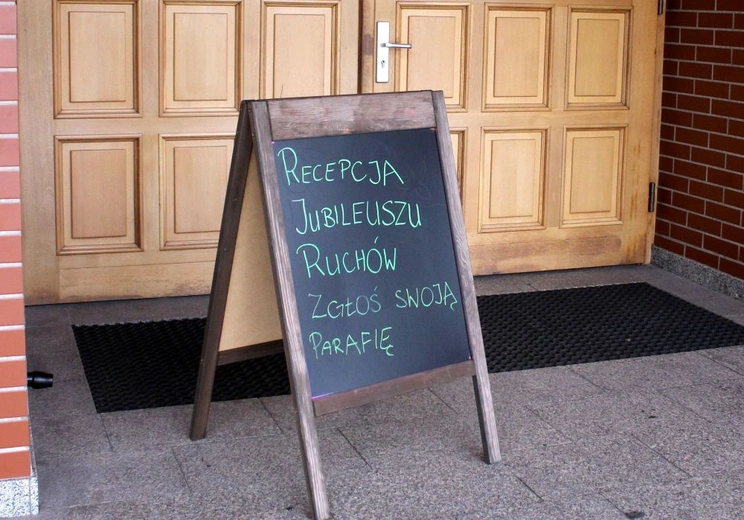 RECEPCJA
JUBILEUSZU
RUCHÓW
ZGŁOŚ SWOJĄ
PARAFIĘ